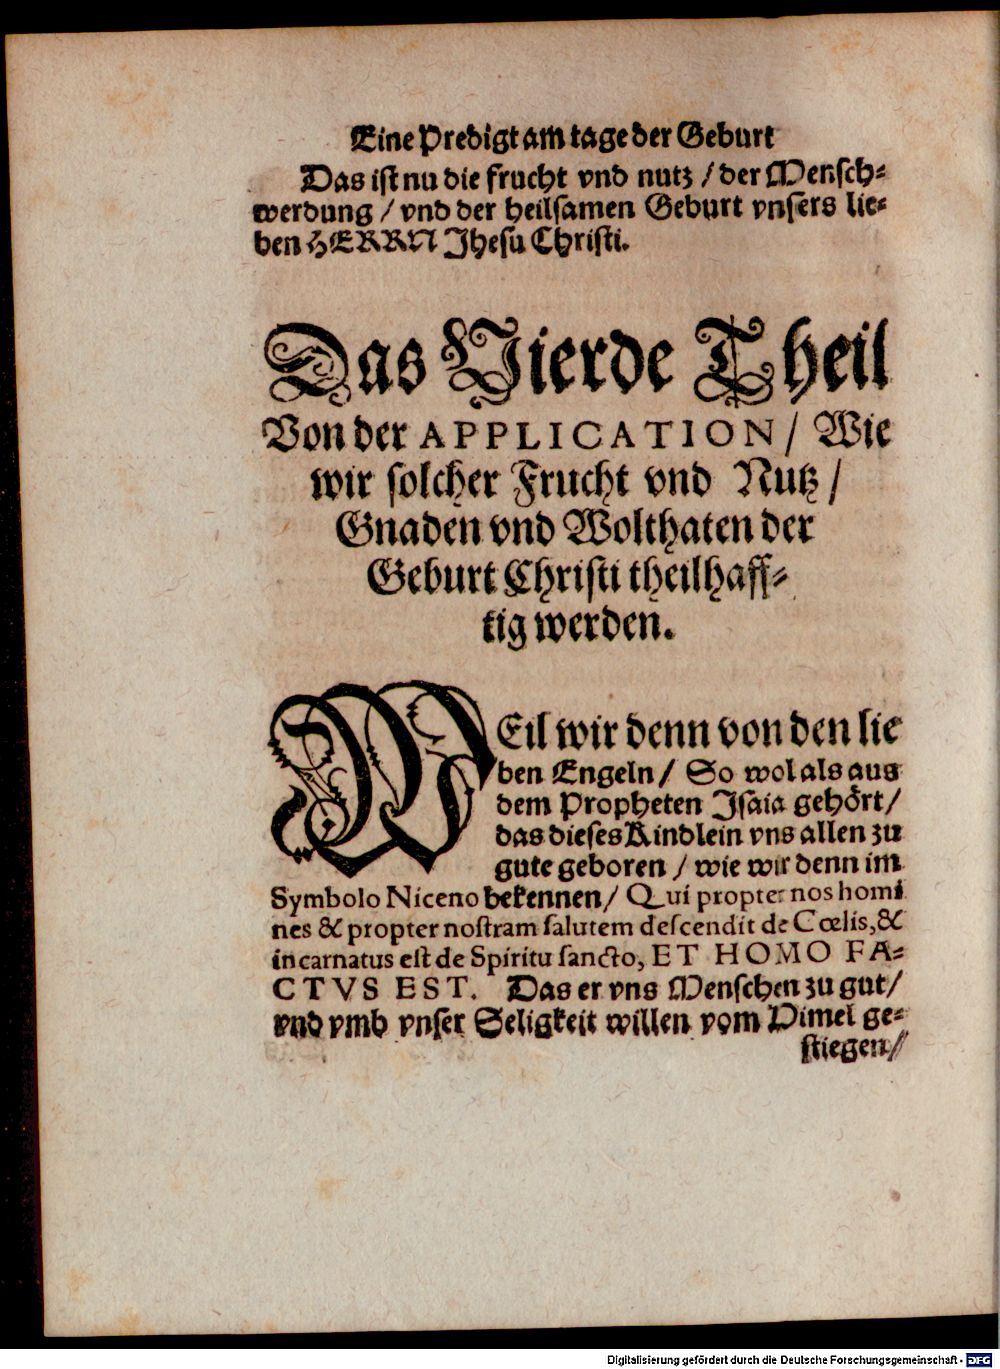 Eine Predigt am tage der Geburt
Das ist nu die frucht vnd nutz / der Mensch⸗
werdung / vnd der heilsamen Geburt vnsers lie⸗
ben HERRN Jhesu Christi.
Das Vierde Theil
Von der APPLICATION / Wie
wir solcher Frucht vnd Nutz /
Gnaden vnd Wolthaten der
Geburt Christi theilhaff⸗
tig werden.
WEil wir denn von den lie
ben Engeln / So wol als aus
dem Propheten Isaia gehört /
das dieses Kindlein vns allen zu
gute geboren / wie wir denn im
Symbolo Niceno bekennen / Qui propter nos homi
nes & propter nostram salutem descendit de Cœlis, &
incarnatus est de Spiritu sancto, ET HOMO FA⸗
CTVS EST. Das er vns Menschen zu gut /
vnd vmb vnser Seligkeit willen vom Himel ge⸗
stiegen /
Digitalisierung gefördert durch die Deutsche Forschungsgemeinschaft - DFG